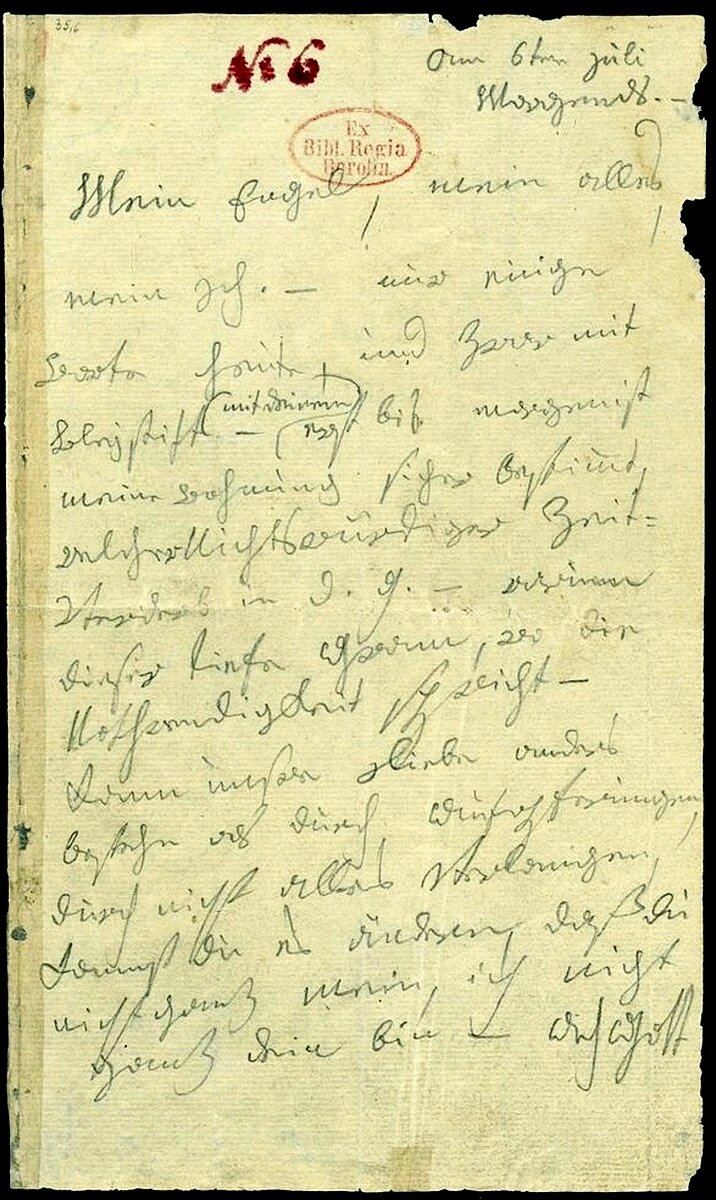 35,6
No 6
am 6ten Juli
Morgends. –
Ex
Bibl. Regia
Berolin.
Mein Engel, mein alles
mein Ich. – nur einige
Worte heute, und zwar mit
Bleystift – (mit deinem)
erst bis morgen ist
meine Wohnung sicher bestimmt,
welcher Nichtswürdiger Zeit=
Verderb in d. g. – warum
dieser tiefe Gram, wo die
Nothwendigkeit spricht –
Kann unsre Liebe anders
bestehn als durch Aufopferungen,
durch nicht alles verlangen,
kannst du es ändern, daß du
nicht ganz mein, ich nicht
ganz dein bin – Ach Gott